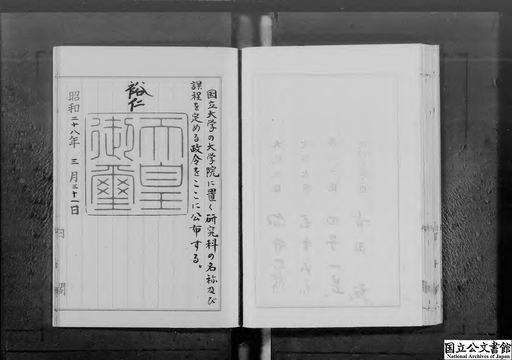 国立大学の大学院に置く研究科の名称及び
課程を定める政令をここに公布する。
裕仁
天皇
御璽
昭和二十八年三月三十一日
内閣
国立公文書館
National Archives of Japan